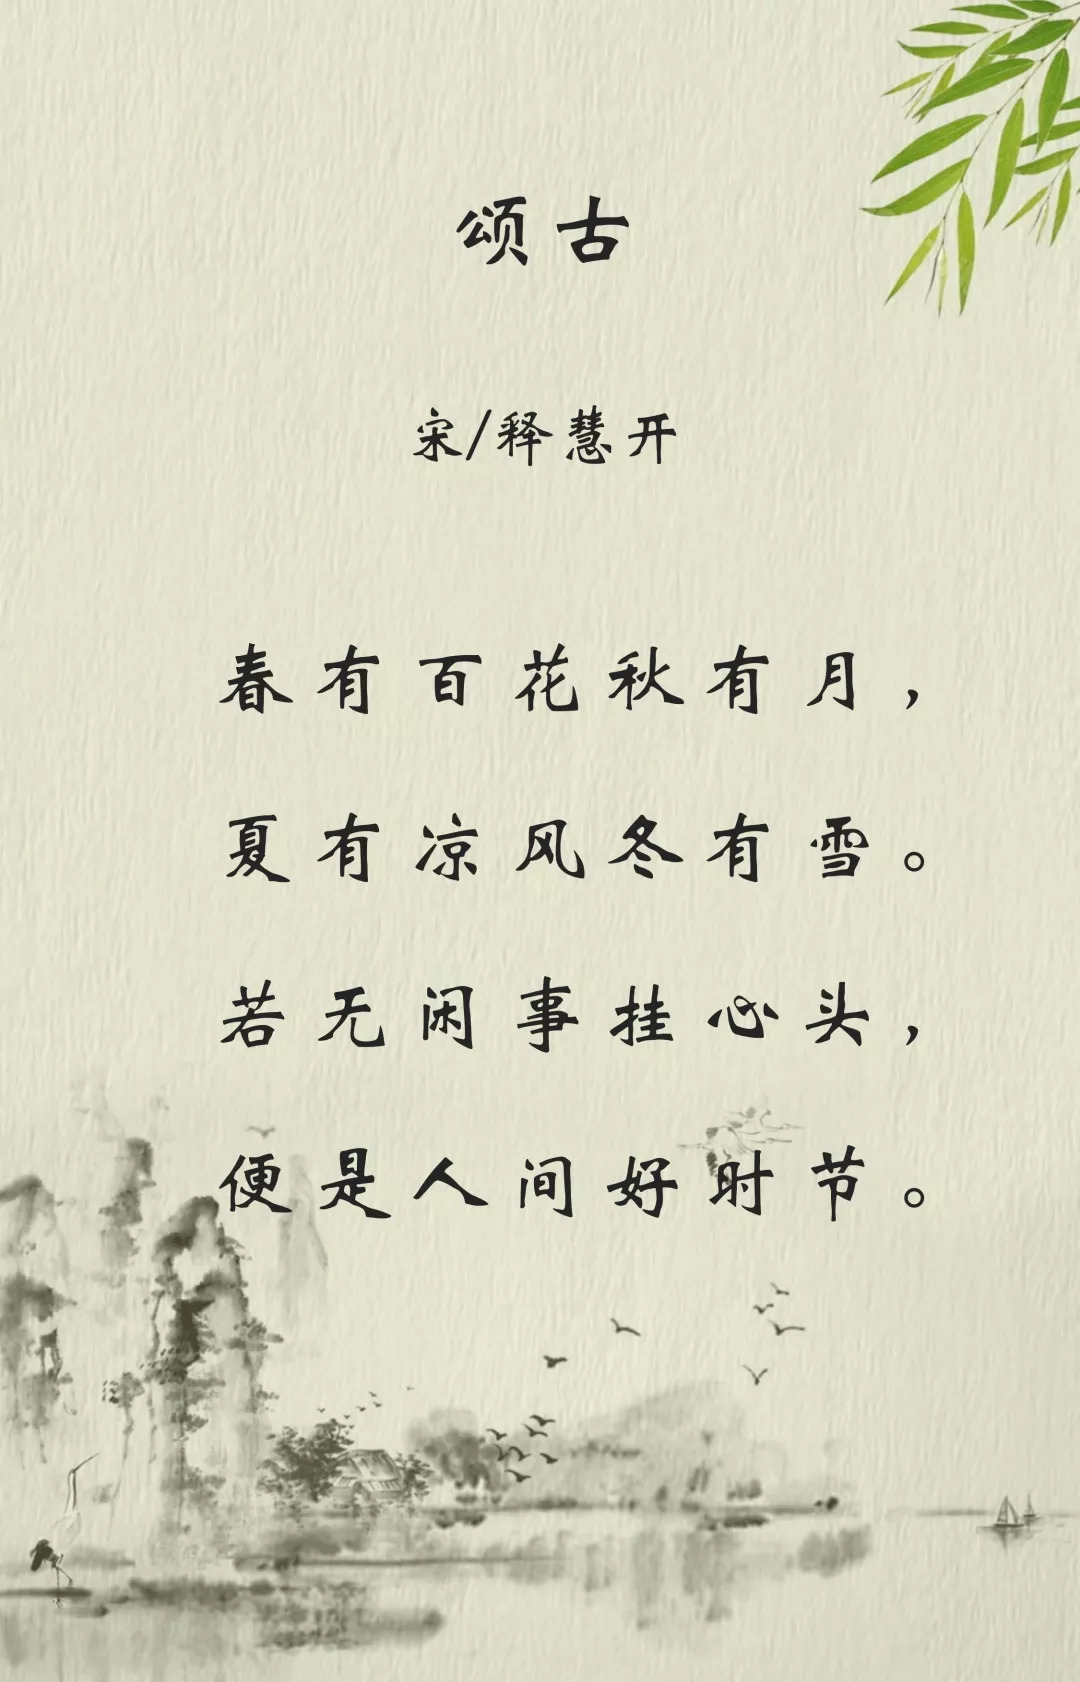 颂古
宋/释慧开
春有百花秋有月，
夏有凉风冬有雪。
若无闲事挂心头，
便是人间好时节。